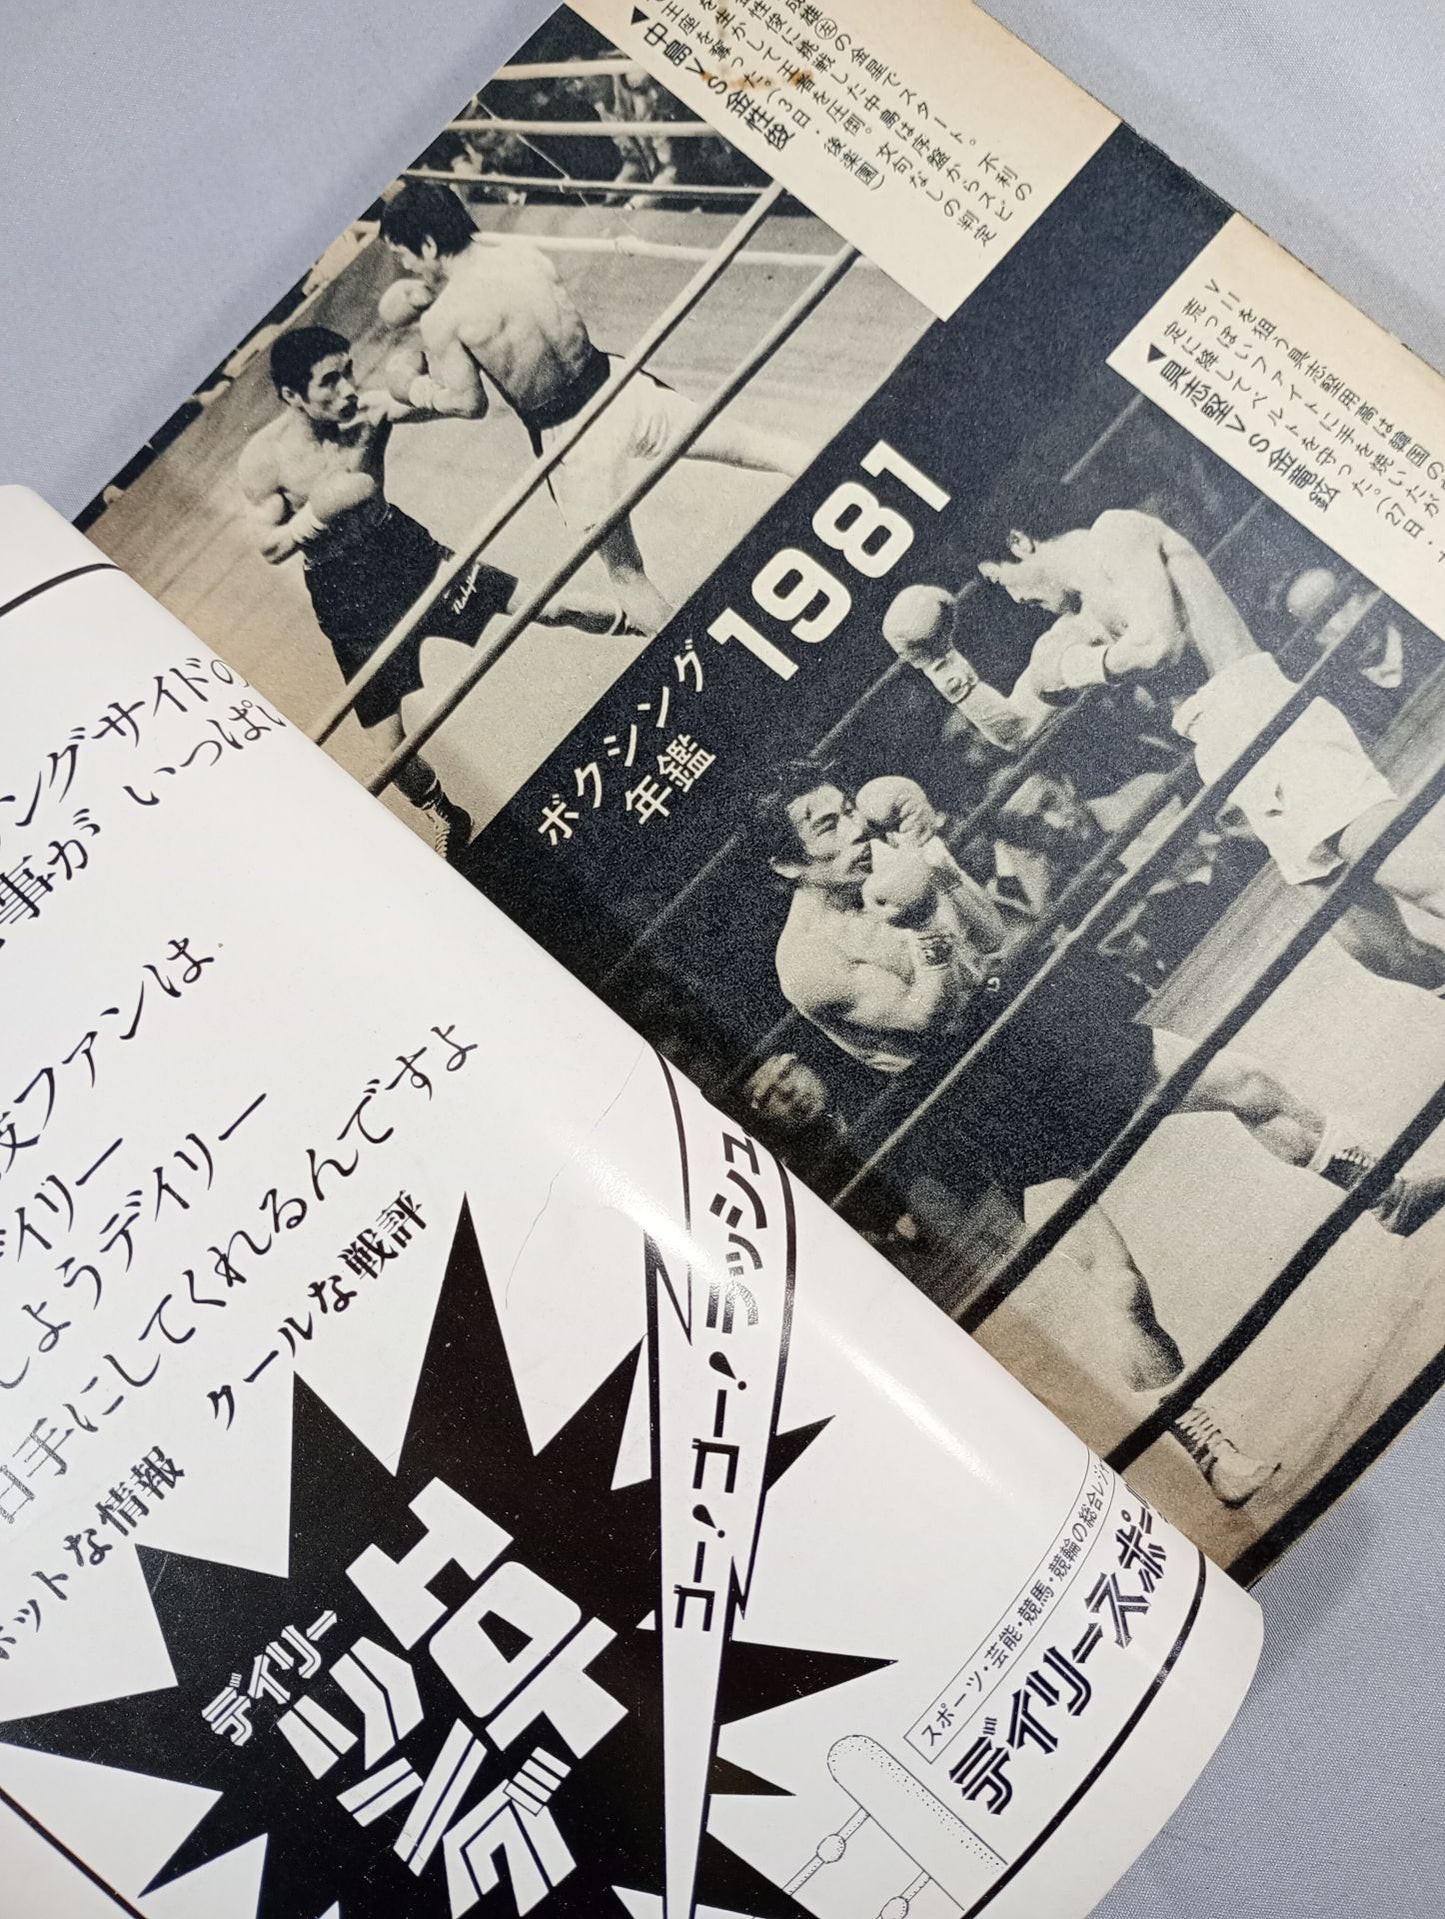 成雄㊧の金星でスタート。不利の
性俊に挑戦した中島は序盤からスピ
を生かして王者を圧倒。文句なしの判定
王座を奪った。(3日・後楽園)
▼中島VS金性俊
V11を狙う具志堅用高は韓国の
荒っぽいファイトに手を焼いたが
定に降してベルトを守った。(27日・
▼具志堅VS金竜鉉
1981
ボクシング
年鑑
ングサイドの
事がいっぱい
ファンは
イリー
しようデイリー
手にしてくれるんですよ
クールな戦評
ホットな情報
デイリー
ゴー!ゴー!ラッシュ
スポーツ・芸能・競馬・競輪の総合レジ
デイリースポー